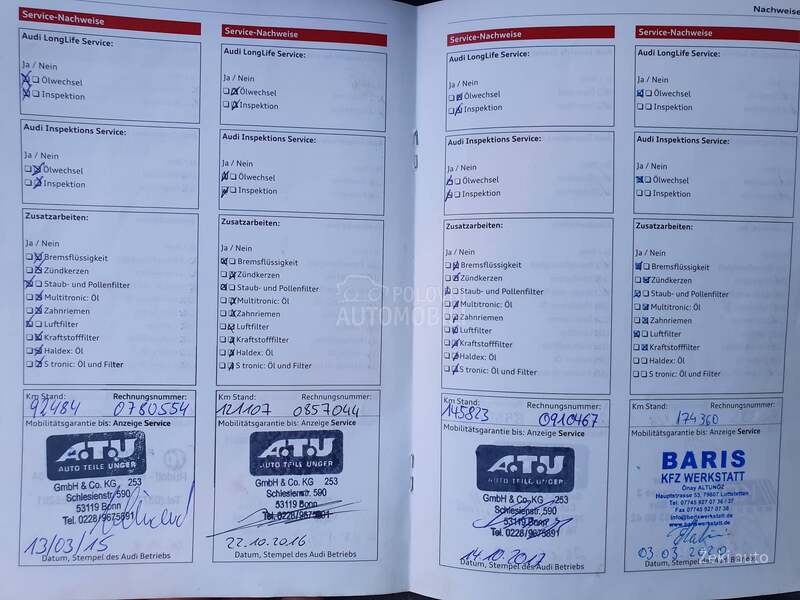 Service-Nachweise
Audi LongLife Service:
Ja / Nein
Ölwechsel
Inspektion
Audi Inspektions Service:
Ja / Nein
Ölwechsel
Inspektion
Zusatzarbeiten:
Ja / Nein
Bremsflüssigkeit
Zündkerzen
Staub- und Pollenfilter
Multitronic: Öl
Zahnriemen
Luftfilter
Kraftstofffilter
Haldex: Öl
S tronic: Öl und Filter
Km Stand: Rechnungsnummer:
92484 0780554
Mobilitätsgarantie bis: Anzeige Service
A.T.U
AUTO TEILE UNGER
GmbH & Co. KG 253
Schlesienstr. 590
53119 Bonn
Tel. 0228/9675891
13/03/15
Datum, Stempel des Audi Betriebs
Service-Nachweise
Audi LongLife Service:
Ja / Nein
Ölwechsel
Inspektion
Audi Inspektions Service:
Ja / Nein
Ölwechsel
Inspektion
Zusatzarbeiten:
Ja / Nein
Bremsflüssigkeit
Zündkerzen
Staub- und Pollenfilter
Multitronic: Öl
Zahnriemen
Luftfilter
Kraftstofffilter
Haldex: Öl
S tronic: Öl und Filter
Km Stand: Rechnungsnummer:
121107 0857044
Mobilitätsgarantie bis: Anzeige Service
A.T.U
AUTO TEILE UNGER
GmbH & Co. KG 253
Schlesienstr. 590
53119 Bonn
Tel. 0228/9675891
22.10.2016
Datum, Stempel des Audi Betriebs
Service-Nachweise
Audi LongLife Service:
Ja / Nein
Ölwechsel
Inspektion
Audi Inspektions Service:
Ja / Nein
Ölwechsel
Inspektion
Zusatzarbeiten:
Ja / Nein
Bremsflüssigkeit
Zündkerzen
Staub- und Pollenfilter
Multitronic: Öl
Zahnriemen
Luftfilter
Kraftstofffilter
Haldex: Öl
S tronic: Öl und Filter
Km Stand: Rechnungsnummer:
145823 0910467
Mobilitätsgarantie bis: Anzeige Service
A.T.U
AUTO TEILE UNGER
GmbH & Co. KG 253
Schlesienstr. 590
53119 Bonn
Tel. 0228/9675891
14.10.
Datum, Stempel des Audi Betriebs
Nachweise
Service-Nachweise
Audi LongLife Service:
Ja / Nein
Ölwechsel
Inspektion
Audi Inspektions Service:
Ja / Nein
Ölwechsel
Inspektion
Zusatzarbeiten:
Ja / Nein
Bremsflüssigkeit
Zündkerzen
Staub- und Pollenfilter
Multitronic: Öl
Zahnriemen
Luftfilter
Kraftstofffilter
Haldex: Öl
S tronic: Öl und Filter
Km Stand: Rechnungsnummer:
174360
Mobilitätsgarantie bis: Anzeige Service
BARIS
KFZ WERKSTATT
Önay ALTUNÖZ
Hauptstrasse 53, 79807 Lottstetten
Tel. 07745 927 07 36 / 37
Fax 07745 927 07 38
info@bariswerkstatt.de
www.bariswerkstatt.de
03.03.2020
Datum, Stempel des Audi Betriebs
POLOVNI
AUTOMOBILI
Zeki auto